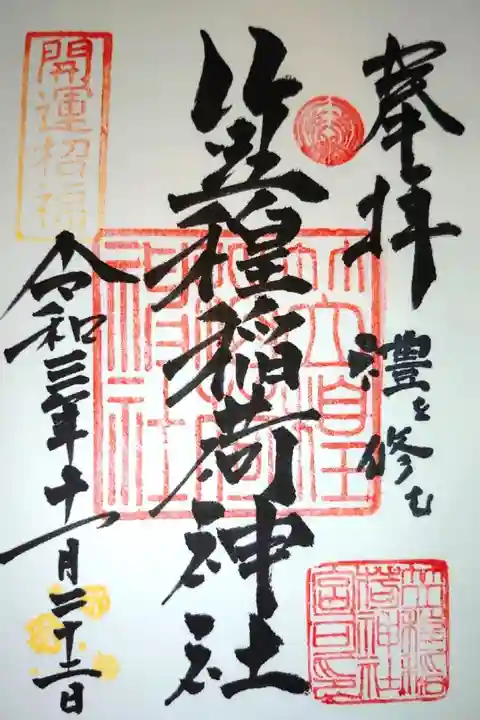 奉拝
禮を修む
笠䅣稲荷神社
開運招福
令和三年十一月二十三日
笠䅣稲
荷神社
宮司之印